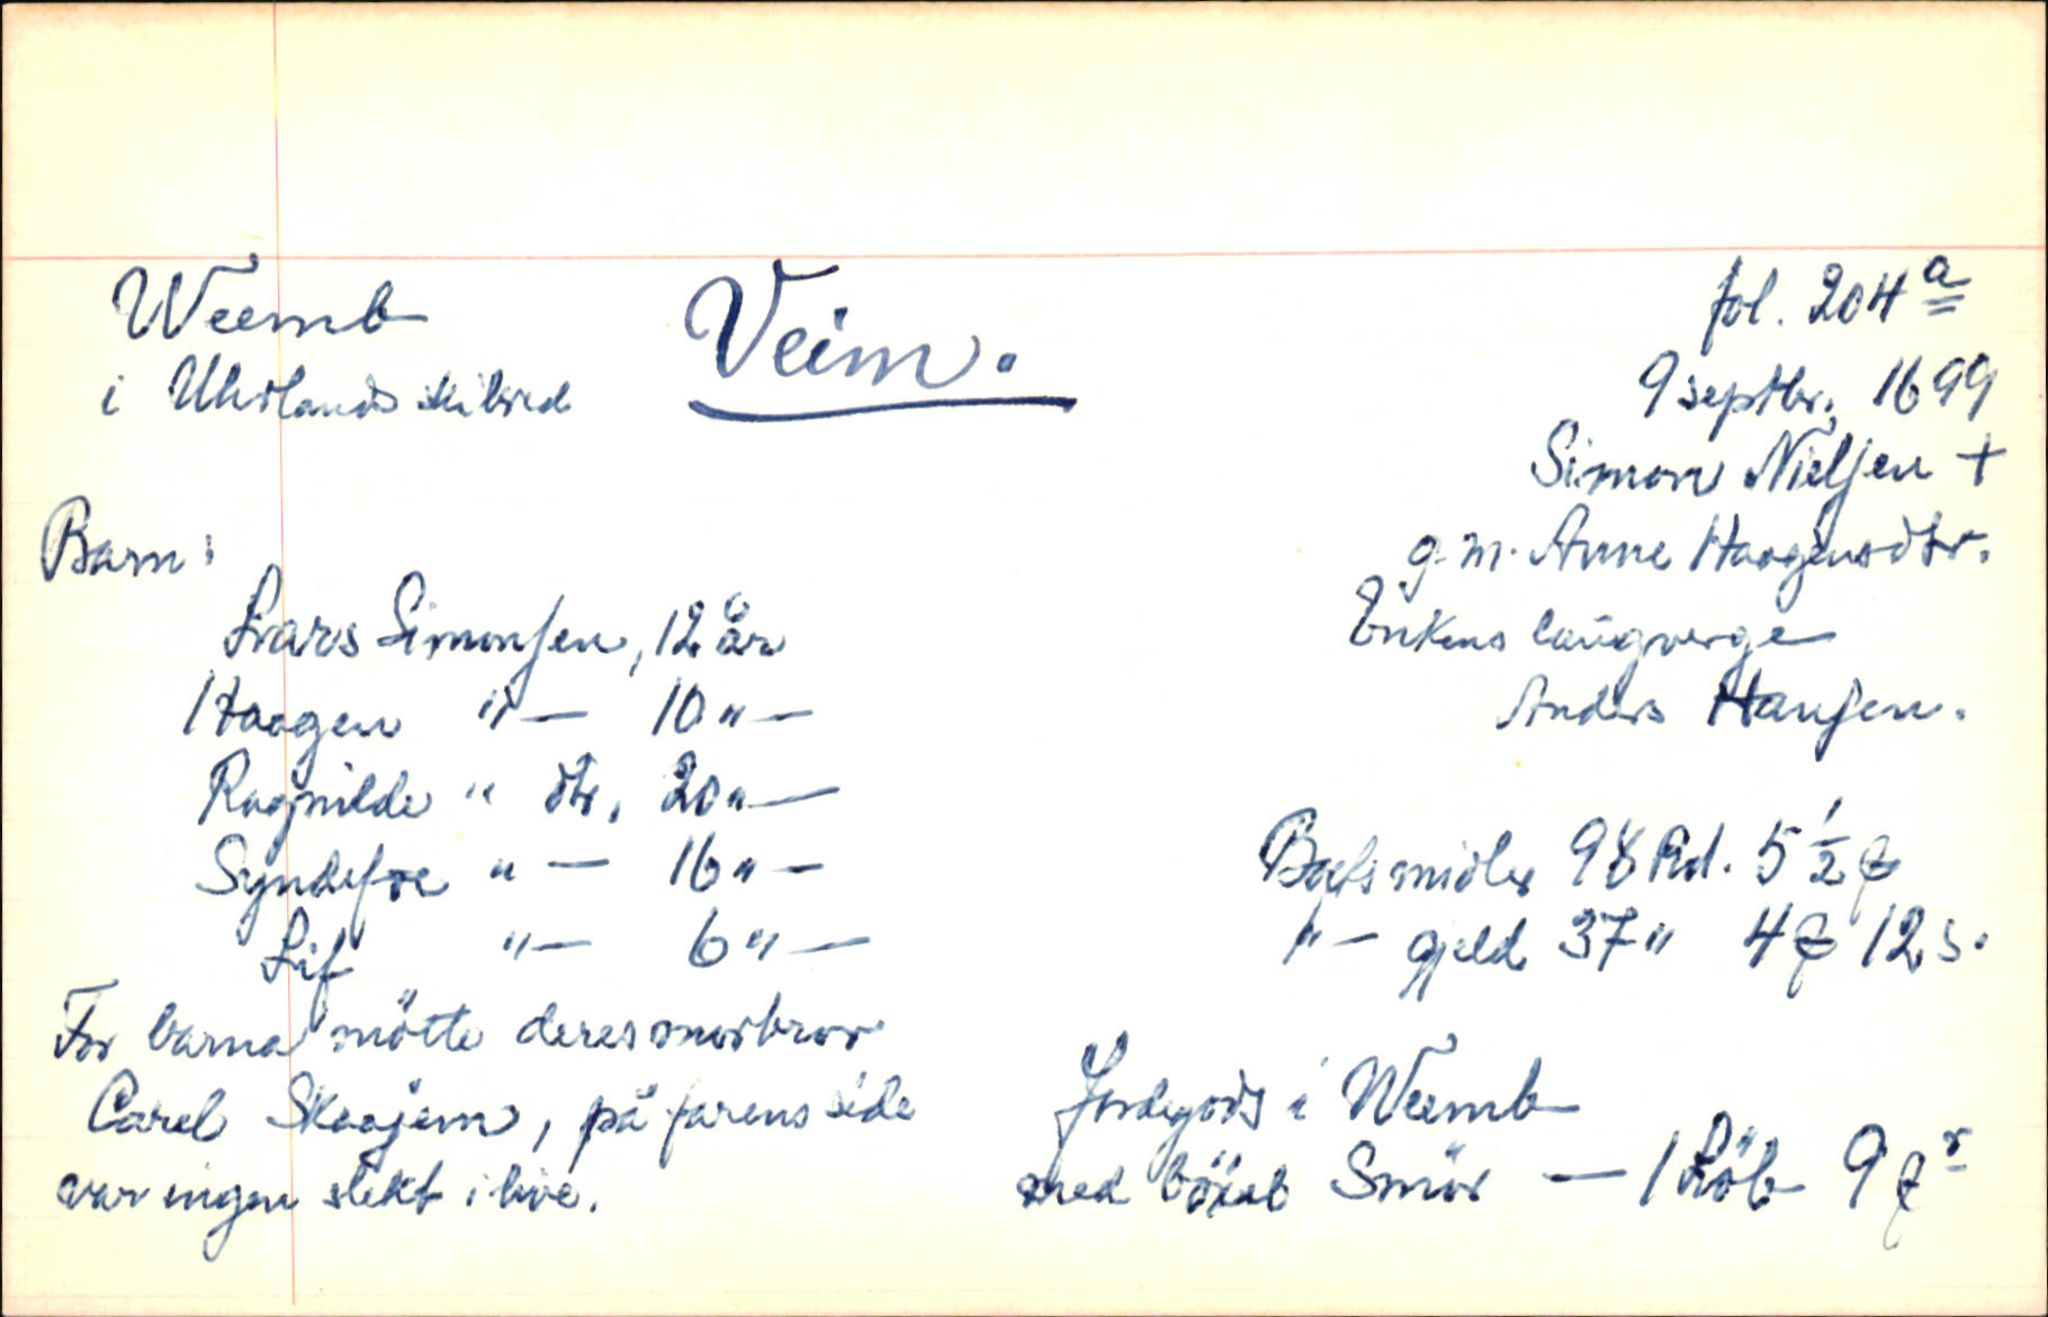 Weemb
i Uhrlands skibred
Veim.
fol. 204 a
9 septbr. 1699
Simon Nielsen +
g.m. Anne Haagensdtr.
Enkens laugverge
Anders Hansen.
Barn:
Lars Simonsen, 12 år
Haagen "— 10 "—
Ragnilde " dtr. 20 "—
Syndefoe "— 16 "—
Lif "— 6 "—
For barna mötte deres morbror
Carel Skaajem, på farens side
var ingen slekt i live.
Boets midler 98 Rd. 5 1/2
"— gjeld 37 " 4 12 s.
Jordegods i Weemb
med böxel Smör — 1 Löb 9